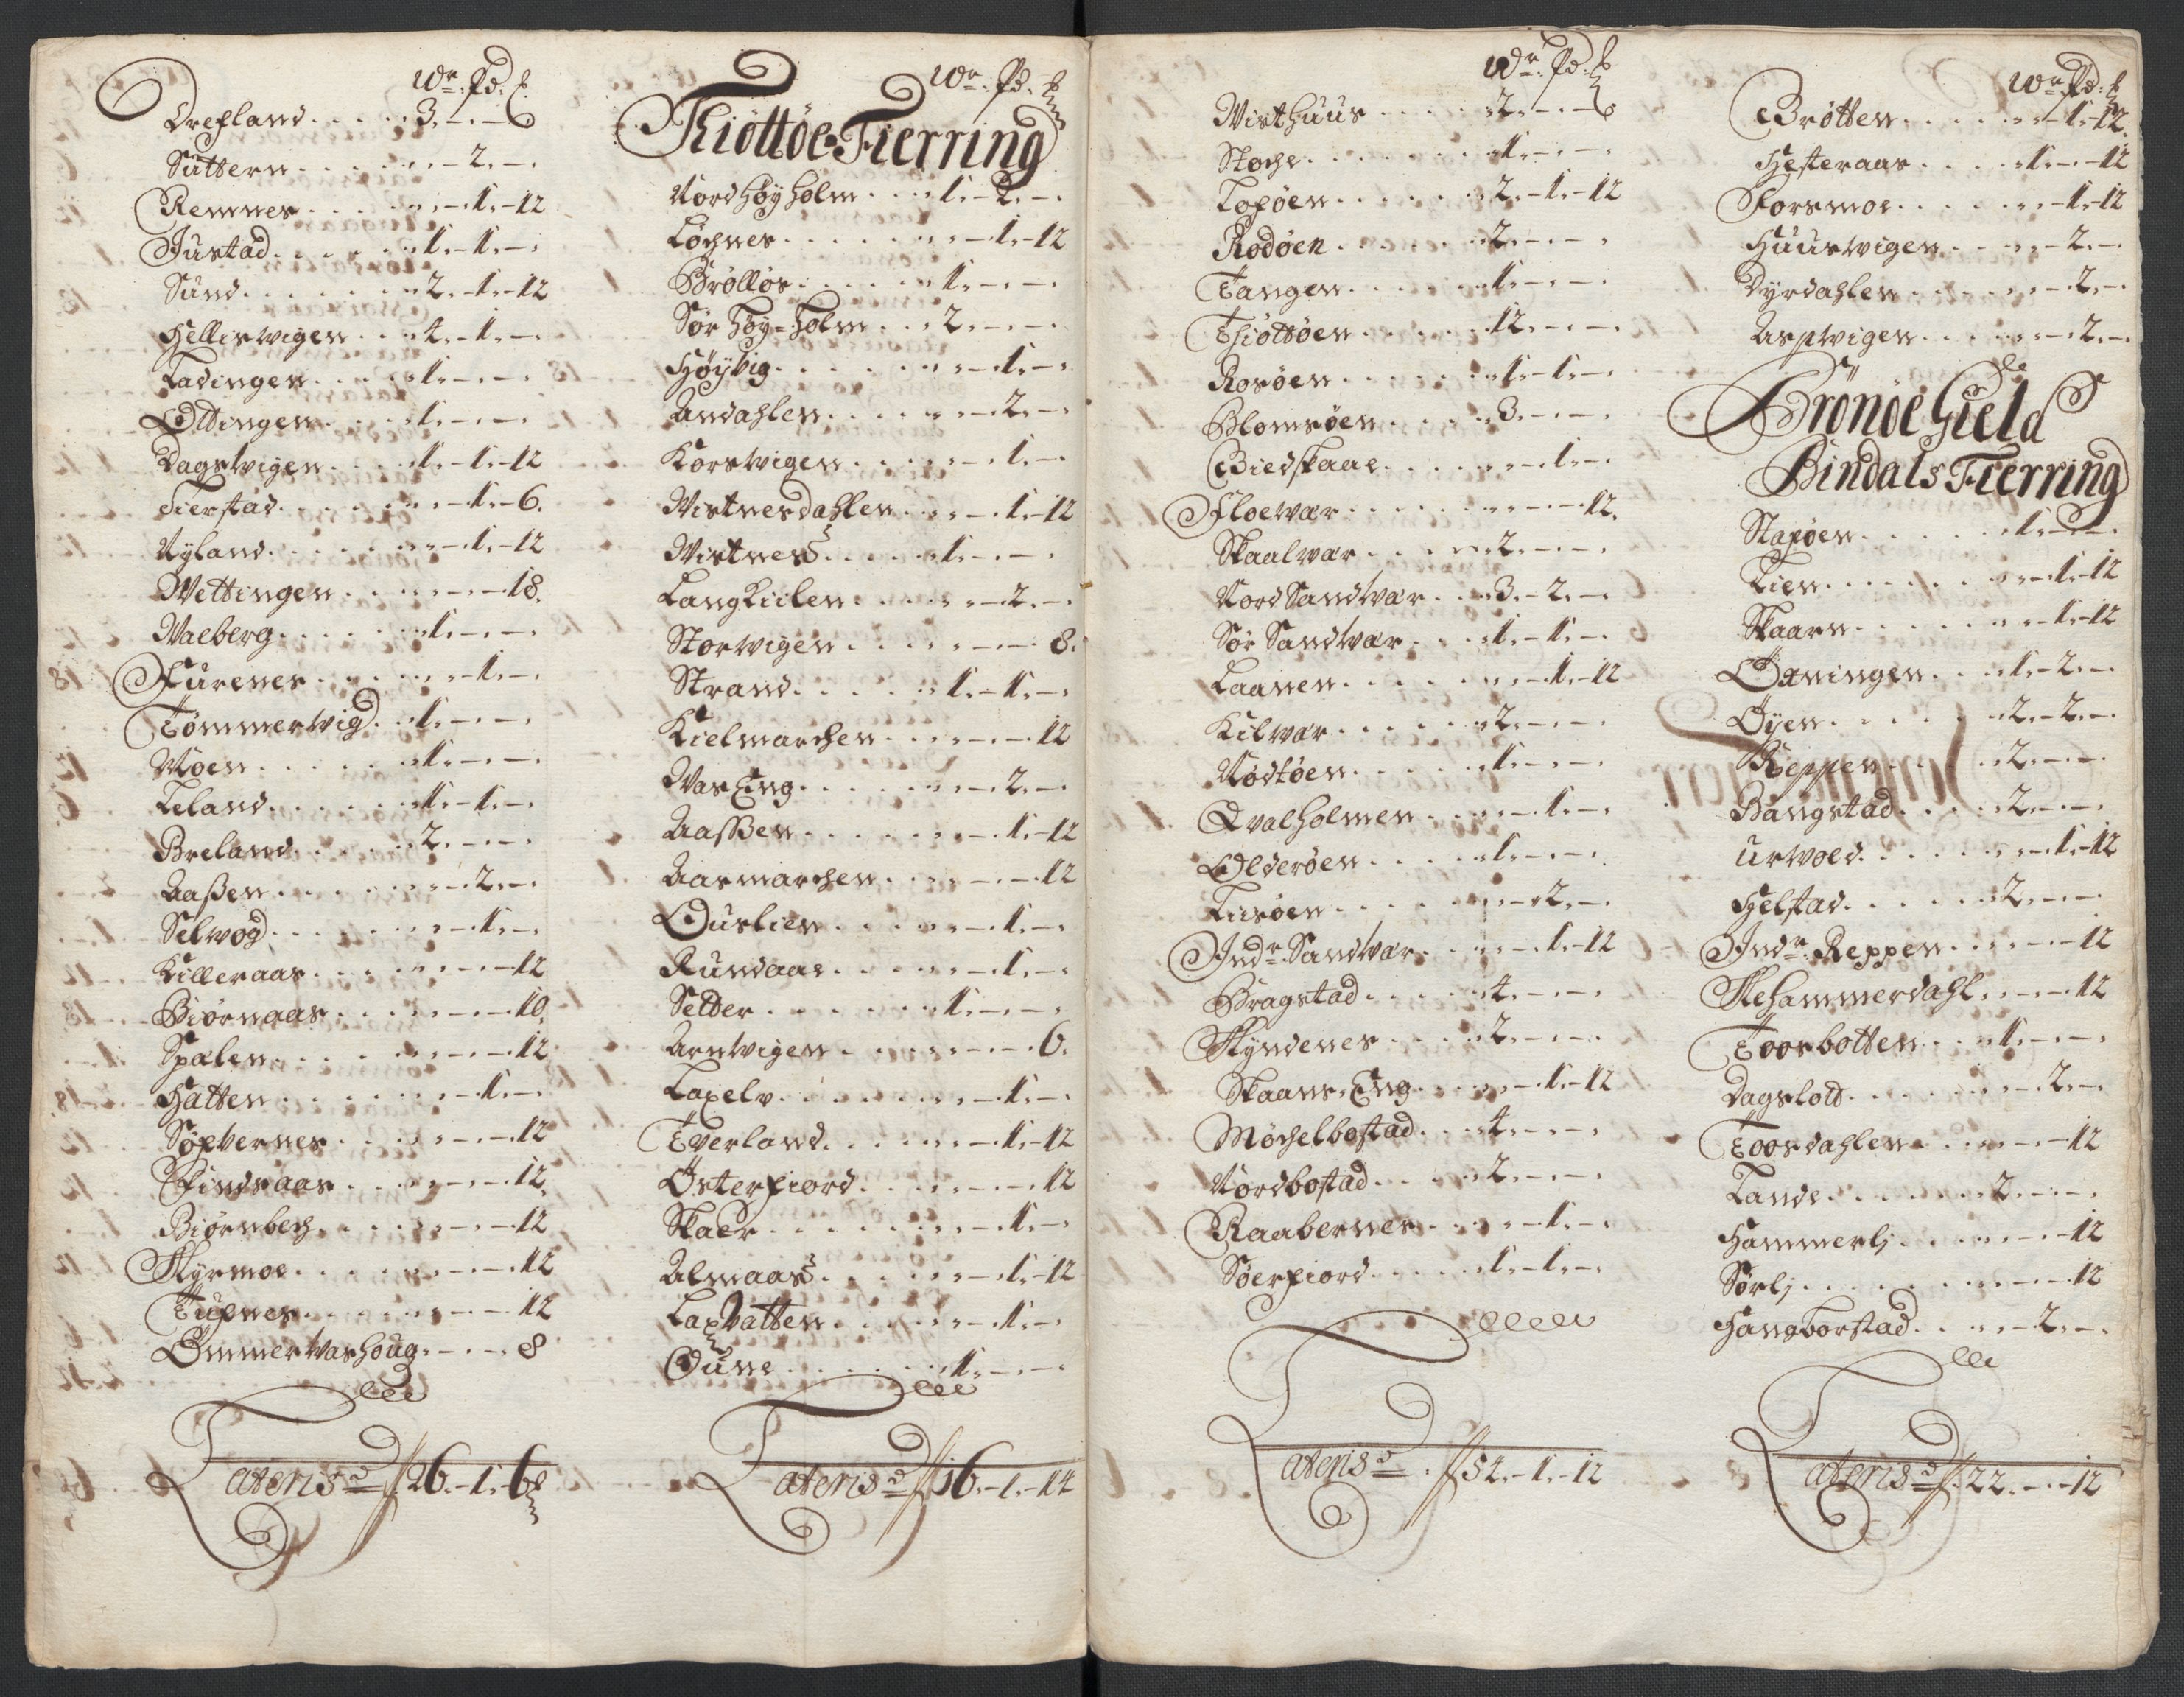 Wr. Pd. ℔
Drefland . . . . . 3. – . –
Suttern . . . . . „ – 2. –
Remnes . . . . . „ – 1. – 12
Justad . . . . . 1. – 1. –
Sund . . . . . 2. – 1. – 12
Hellisvigen . . 4. – 1. –
Ladingen . . . . 1. – . –
Ottingen . . . . 1. – . –
Dagsvigen . . . 1. – 1. – 12
Tierstad . . . . „ – 1. – 6.
Nyland . . . . . „ – 1. – 12
Wettingen . . . . „ – . – 18.
Waeberg . . . . . 1. – . –
Furenes . . . . . „ – 1. –
Tømmervig . . 1. – . –
Moen . . . . . 1. – . –
Leland . . . . . 1. – 1. –
Breland . . . . . 2. – . –
Aaßen . . . . . „ – 2. –
Selvog . . . . . „ – 1. –
Killeraas . . . . . „ – . – 12
Biørnaas . . . . . „ – . – 10.
Spalen . . . . . „ – . – 12
Hatten . . . . . „ – 1. –
Søfvernes . . . . „ – . – 12
Findsaas . . . . . „ – . – 12.
Biørnbech . . . . „ – . – 12
Skyrmoe . . . . . „ – . – 12
Tufnes . . . . . „ – . – 12
Ommervashoug . – . – 8
Lateris ſſ 26. – 1. – 6
Wr. Pd. ℔
Thiøttøe Fierring
Nordhøyholm . . . 1. – 2. –
Løchnes . . . . . „ – 1. – 12
Brølløs . . . . . 1. – . –
Sør Høy=holm . . 2. – . –
Høyvig . . . . . „ – 1. –
Andahlen . . . . „ – 2. –
Korsvigen . . . . „ – 1. –
Wistnesdahlen . . „ – 1. – 12
Wistnes . . . . . 1. – . –
Langkiilen . . . . „ – 2. –
Storvigen . . . . „ – . – 8.
Strand . . . . . 1. – 1. –
Kielmarchen . . . „ – . – 12
Was Eng . . . . . „ – 2. –
Aaßen . . . . . „ – 1. – 12
Aasmarchen . . . „ – . – 12
Ouslien . . . . . „ – 1. –
Rundaas . . . . . „ – 1. –
Setter . . . . . 1. – . –
Arnvigen . . . . „ – . – 6.
Laxelv . . . . . „ – 1. –
Tverland . . . . . „ – 1. – 12
Østerfiord . . . . „ – . – 12
Skaer . . . . . „ – 1. –
Almaas . . . . . „ – 1. – 12
Laxvatten . . . . „ – 1. –
Oune . . . . . 1. – . –
Lateris ſſ 16. – 1. – 14
Wr. Pd. ℔
Wisthuus . . . . 2. – . –
Stoche . . . . . 1. – . –
Toføen . . . . . 2. – 1. – 12
Rodøen . . . . . 2. – . –
Tangen . . . . . 1. – . –
Thiøttøen . . . . 12. – . –
Rosøen . . . . . 1. – 1. –
Blomsøen . . . . 3. – . –
Biedskaae . . . . „ – 1. –
Floevær . . . . . „ – . – 12.
Skaalvær . . . . 2. – . –
Nord Sandvær . . 3. – 2. –
Sør Sandvær . . 1. – 1. –
Laanen . . . . . „ – 1. – 12
Kilvær . . . . . 2. – . –
Nødtøen . . . . . 1. – . –
Qvalholmen . . . „ – 1. –
Olderøen . . . . 1. – . –
Tiisøen . . . . . „ – 2. –
Indr. Sandvær . . „ – 1. – 12
Bragstad . . . . 4. – . –
Skyndenes . . . . 2. – . –
Skaans Eng . . . „ – 1. – 12
Møchelbostad . . 4. – . –
Nordbostad . . . 2. – . –
Raabernes . . . . „ – 1. –
Søerfiord . . . . 1. – 1. –
Lateris ſſ 54. – 1. – 12
Wr. Pd. ℔
Brøtten . . . . . „ – 1. – 12.
Hesteraas . . . . 1. – . – 12
Forsmoe . . . . . „ – 1. – 12
Huusvigen . . . . „ – 2. –
Dyrdahlen . . . . „ – 2. –
Aspvigen . . . . „ – 2. –
Brønøe Gield
Bindals Fierring
Stapøen . . . . . 1. – . –
Lien . . . . . „ – 1. – 12
Skaarn . . . . . „ – 1. – 12
Oxningen . . . 1. – 2. –
Øyen . . . . . 2. – 2. –
Reppen . . . . . 2. – . –
Bangstad . . . . 2. – . –
Urvold . . . . . „ – 1. – 12
Helstad . . . . . 2. – . –
Indr. Reppen . . . „ – . – 12
Flehammerdahl . „ – . – 12
Toosbotten . . . 1. – . –
Dagslott . . . . . „ – 2. –
Toosdahlen . . . „ – . – 12
Lande . . . . . 2. – . –
Hammerlj . . . . „ – . – 12
Sørlj . . . . . „ – . – 12
Hangborstad . . . „ – 2. –
Lateris ſſ 22. – . – 12